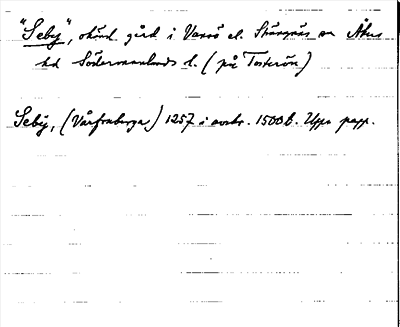 "Seby", okänd gård i Vansö el. Strängnäs sn Åkers
hd Södermanlands l. (på Tosterön)
Seby, (Vårfruberga) 1257 i avskr. 1500 b. Upps papp.